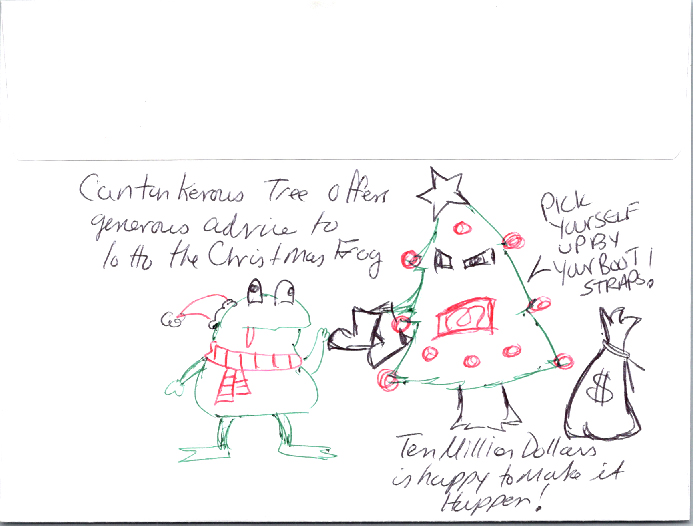 Cantankerous Tree offers
generous advice to
lotto the Christmas Frog
PICK
YOURSELF
UP BY
YOUR BOOT
STRAPS.
$
Ten Million Dollars
is happy to make it
Happen!